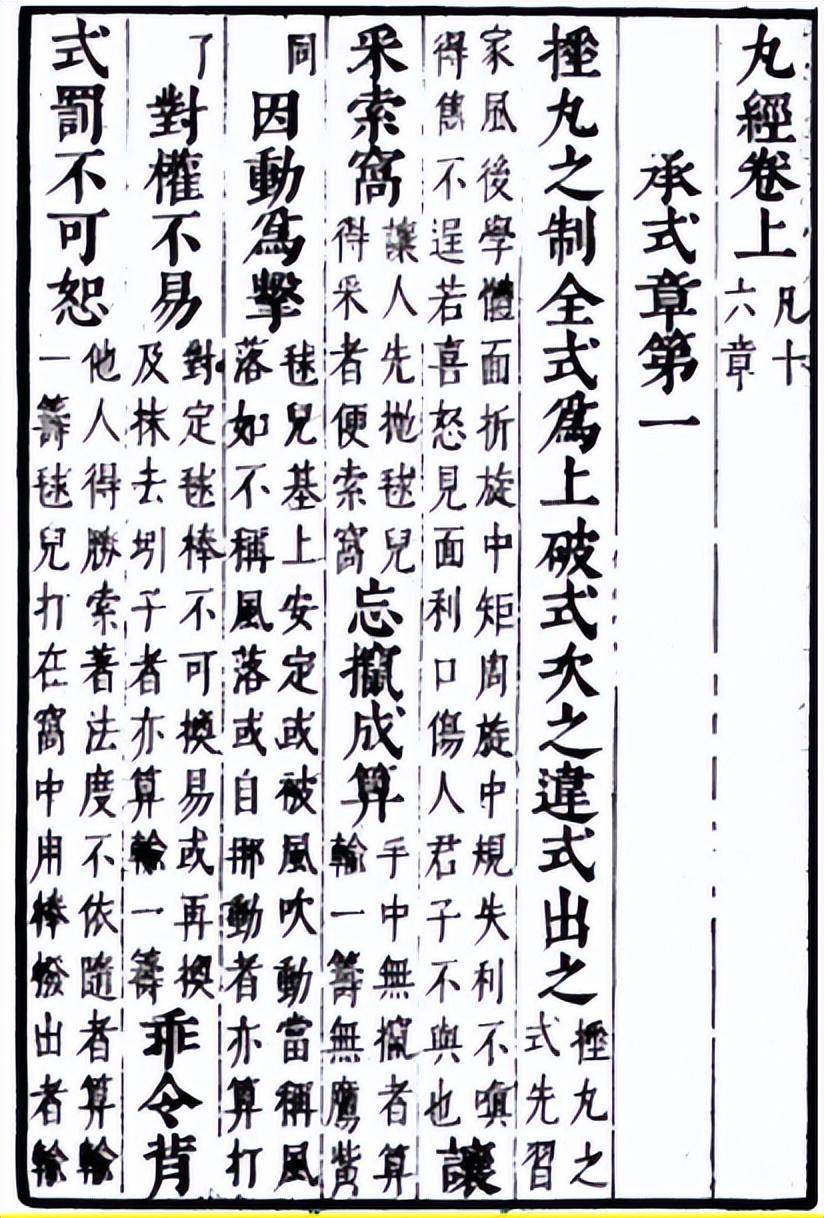 丸經卷上凡十六章
承式章第一
捶丸之制全式爲上破式次之違式出之捶丸之式先習
家風後學體面折旋中矩周旋中規失利不嗔得雋不逞若喜怒見面利口傷人君子不與也讓
采索窩讓人先拋毬兒得采者便索窩忘攛成算手中無攛者算輸一籌無鷹觜
同因動爲擊毬兒基上安定或被風吹動當稱風落如不稱風落或自那動者亦算打
了對權不易對定毬棒不可換易或再換及抹去圳子者亦算輸一籌乖令背
式罰不可恕他人得勝索著法度不依隨者算輸一籌毬兒打在窩中用棒撥出者輸